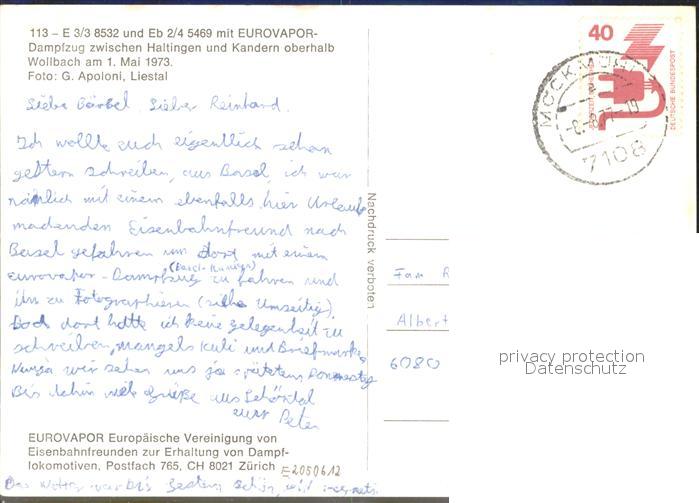 113 – E 3/3 8532 und Eb 2/4 5469 mit EUROVAPOR-
Dampfzug zwischen Haltingen und Kandern oberhalb
Wollbach am 1. Mai 1973.
Foto: G. Apoloni, Liestal
Liebe Bärbel, Lieber Reinhard.
Ich wollte euch eigentlich schon
gestern schreiben, aus Basel, ich war
nämlich mit einem ebenfalls hier Urlaub
machenden Eisenbahnfreund nach
Basel gefahren um dort mit einem
(Basel-
Eurovapor-Dampfzug zu fahren und
ihn zu Fotographieren (siehe Umseitig).
Doch dort hatte ich keine gelegenheit zu
schreiben, mangels Kuli und Briefmarke.
Nunja wir sehen uns ja spätestens Donnerstag
Bis dahin viele Grüße aus
euer Peter
EUROVAPOR Europäische Vereinigung von
Eisenbahnfreunden zur Erhaltung von Dampf-
lokomotiven, Postfach 765, CH 8021 Zürich
E-2050612
Das Wetter war bis Gestern Schön,
Nachdruck verboten
40
DEUTSCHE BUNDESPOST
MÖCKMÜHL
a
-8.-8.77-19
7108
Fam R
Albert
6080
privacy protection
Datenschutz